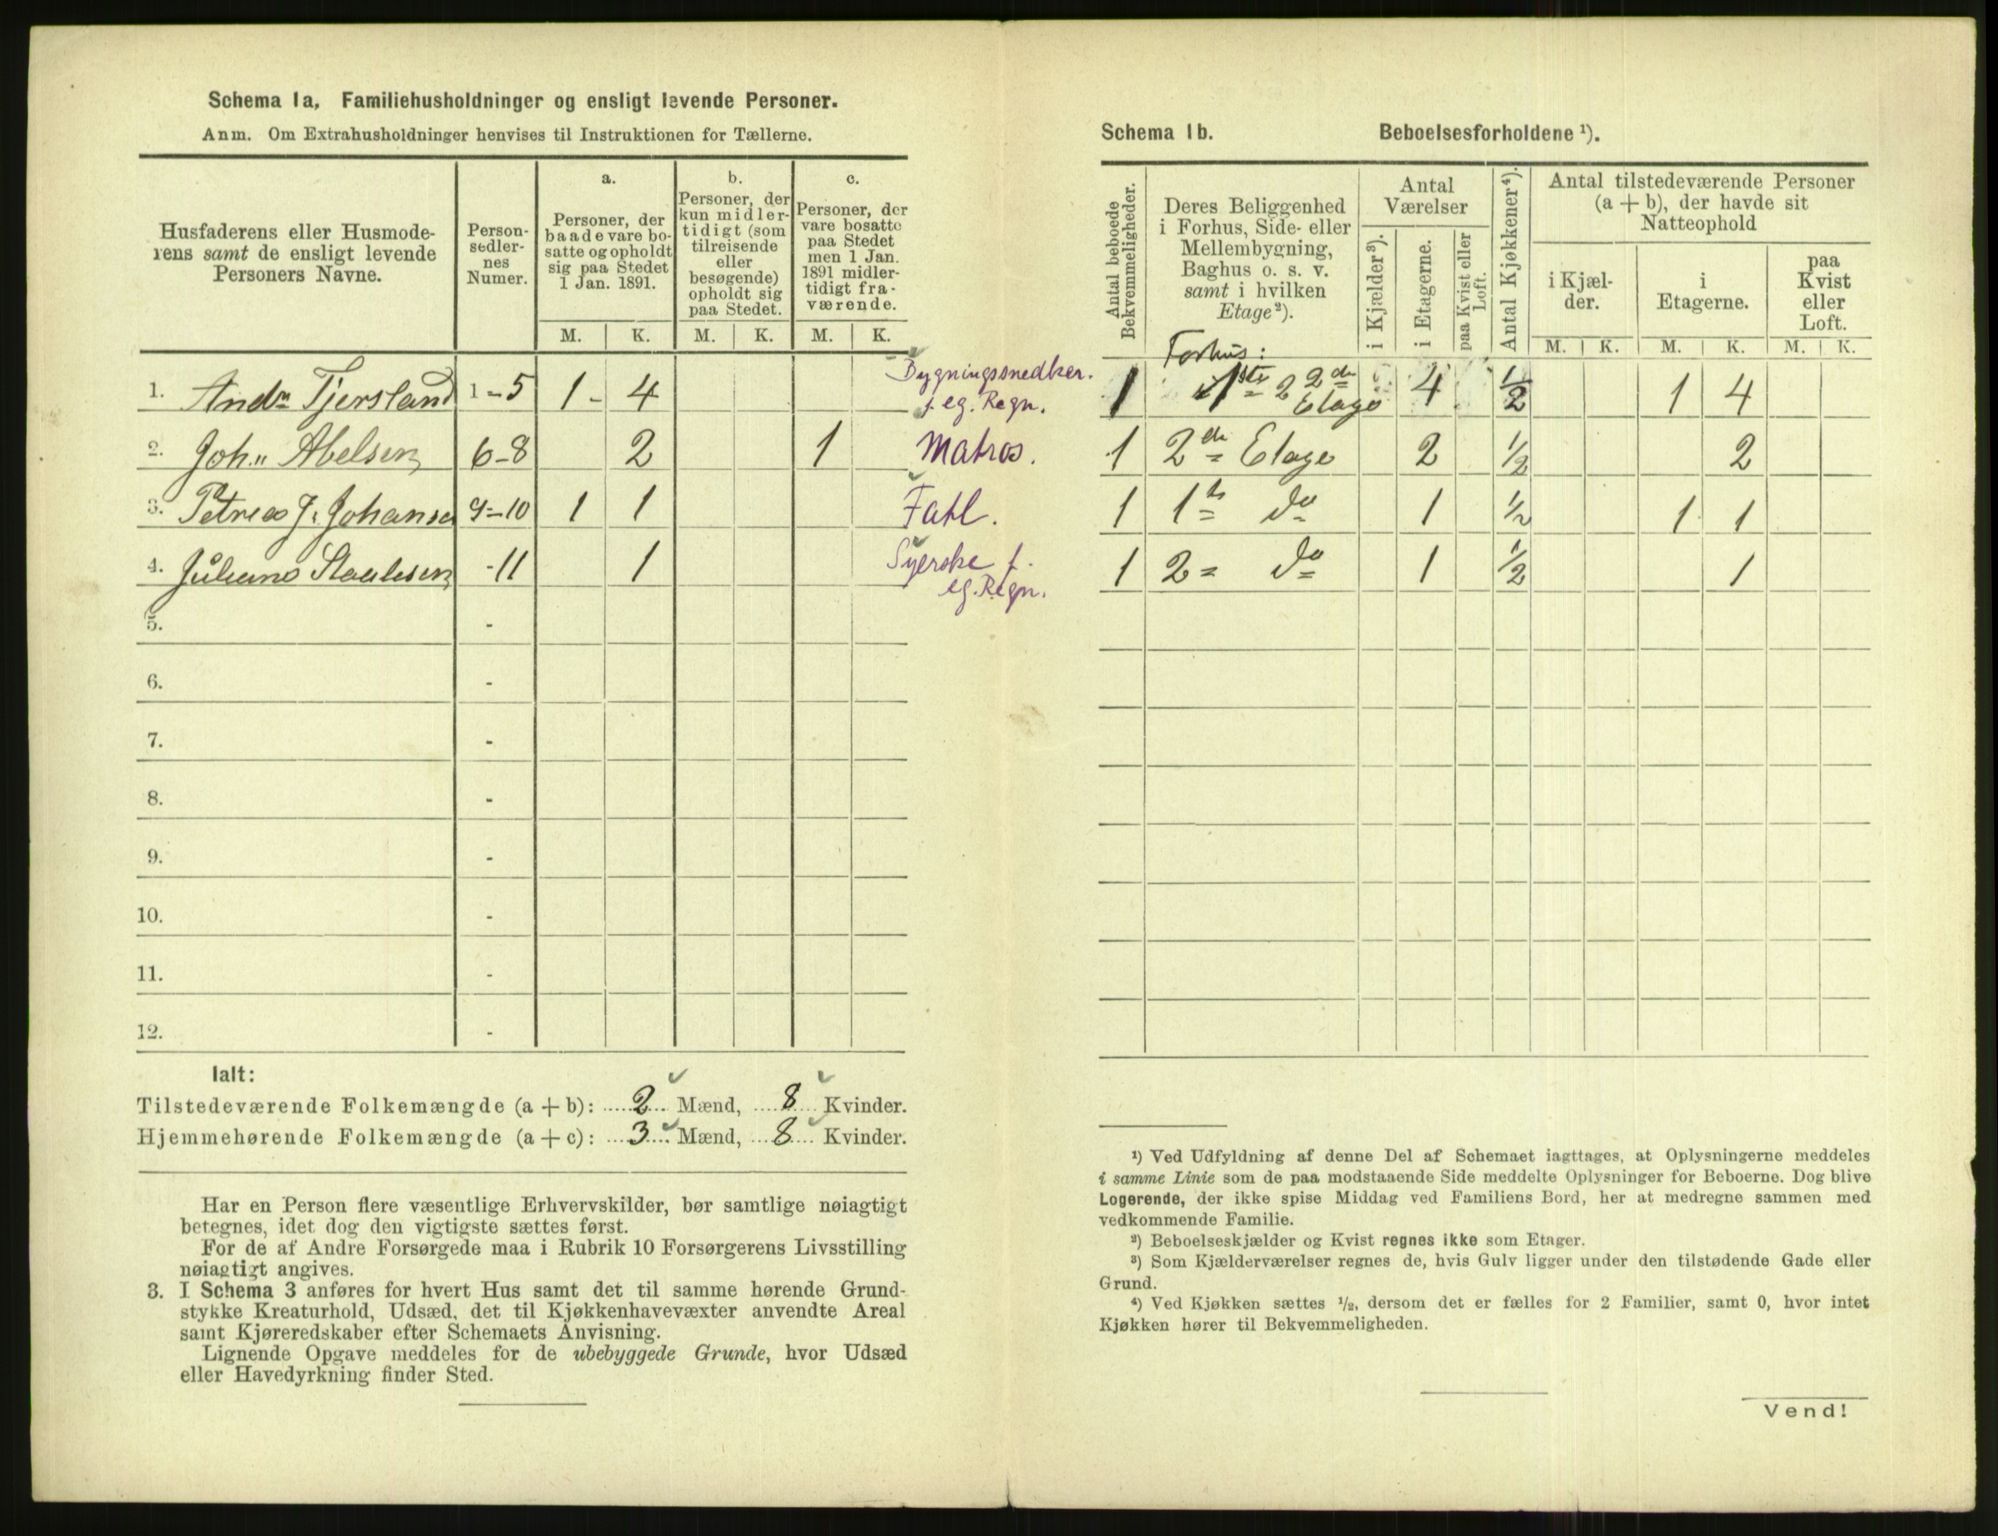 Schema 1a. Familiehusholdninger og ensligt levende Personer.
Anm. Om Extrahusholdninger henvises til Instruktionen for Tællerne.
Husfaderens eller Husmode-
rens samt de ensligt levende
Personers Navne.
Person-
sedler-
nes
Numer.
a.
Personer, der
baade vare bo-
satte og opholdt
sig paa Stedet
1 Jan. 1891.
b.
Personer, der
kun midler-
tidigt (som
tilreisende
eller
besøgende)
opholdt sig
paa Stedet.
c.
Personer, der
vare bosatte
paa Stedet
men 1 Jan.
1891 midler-
tidigt fra-
værende.
M. K. M. K. M. K.
1. Andr Tjersland 1-5 1 - 4 Bygningssnedker. f. eg. Regn.
2. Joh.. Abelsen 6-8 2 1 Matros.
3. Petrea J. Johansen 9-10 1 1 Fatl.
4. Juliane Staalesen -11 1 Syerske f. eg. Regn.
5. -
6. -
7. -
8. -
9. -
10. -
11. -
12. -
Ialt:
Tilstedeværende Folkemængde (a + b): 2 Mænd, 8 Kvinder.
Hjemmehørende Folkemængde (a + c): 3 Mænd, 8 Kvinder.
Har en Person flere væsentlige Erhvervskilder, bør samtlige nøiagtigt
betegnes, idet dog den vigtigste sættes først.
For de af Andre Forsørgede maa i Rubrik 10 Forsørgerens Livsstilling
nøiagtigt angives.
3. I Schema 3 anføres for hvert Hus samt det til samme hørende Grund-
stykke Kreaturhold, Udsæd, det til Kjøkkenhavevæxter anvendte Areal
samt Kjøreredskaber efter Schemaets Anvisning.
Lignende Opgave meddeles for de ubebyggede Grunde, hvor Udsæd
eller Havedyrkning finder Sted.
Schema 1b. Beboelsesforholdene ¹).
Antal beboede
Bekvemmeligheder.
Deres Beliggenhed
i Forhus, Side- eller
Mellembygning,
Baghus o. s. v.
samt i hvilken
Etage²).
Antal
Værelser
i Kjælder³).
i Etagerne.
paa Kvist eller
Loft.
Antal Kjøkkener⁴).
Antal tilstedeværende Personer
(a + b), der havde sit
Natteophold
i Kjæl-
der.
i
Etagerne.
paa
Kvist
eller
Loft.
M. K. M. K. M. K.
Forhus:
1 1ste 2 2de Etage 4 ½ 1 4
1 2de Etage 2 ½ 2
1 1ste do 1 ½ 1 1
1 2 = do 1 ½ 1
¹) Ved Udfyldning af denne Del af Schemaet iagttages, at Oplysningerne meddeles
i samme Linie som de paa modstaaende Side meddelte Oplysninger for Beboerne. Dog blive
Logerende, der ikke spise Middag ved Familiens Bord, her at medregne sammen med
vedkommende Familie.
²) Beboelseskjælder og Kvist regnes ikke som Etager.
³) Som Kjælderværelser regnes de, hvis Gulv ligger under den tilstødende Gade eller
Grund.
⁴) Ved Kjøkken sættes ½, dersom det er fælles for 2 Familier, samt 0, hvor intet
Kjøkken hører til Bekvemmeligheden.
Vend!